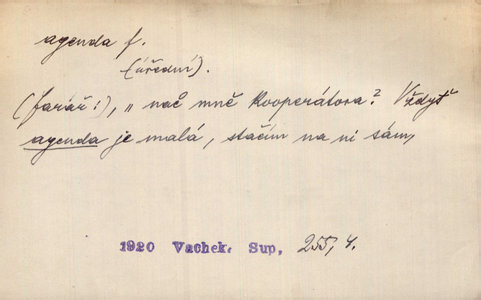 agenda f.
(úřední).
(farář:), „ nač mně kooperátora? Vždyť
agenda je malá, stačím na ni sám,
1920 Vachek. Sup, 255, 4.